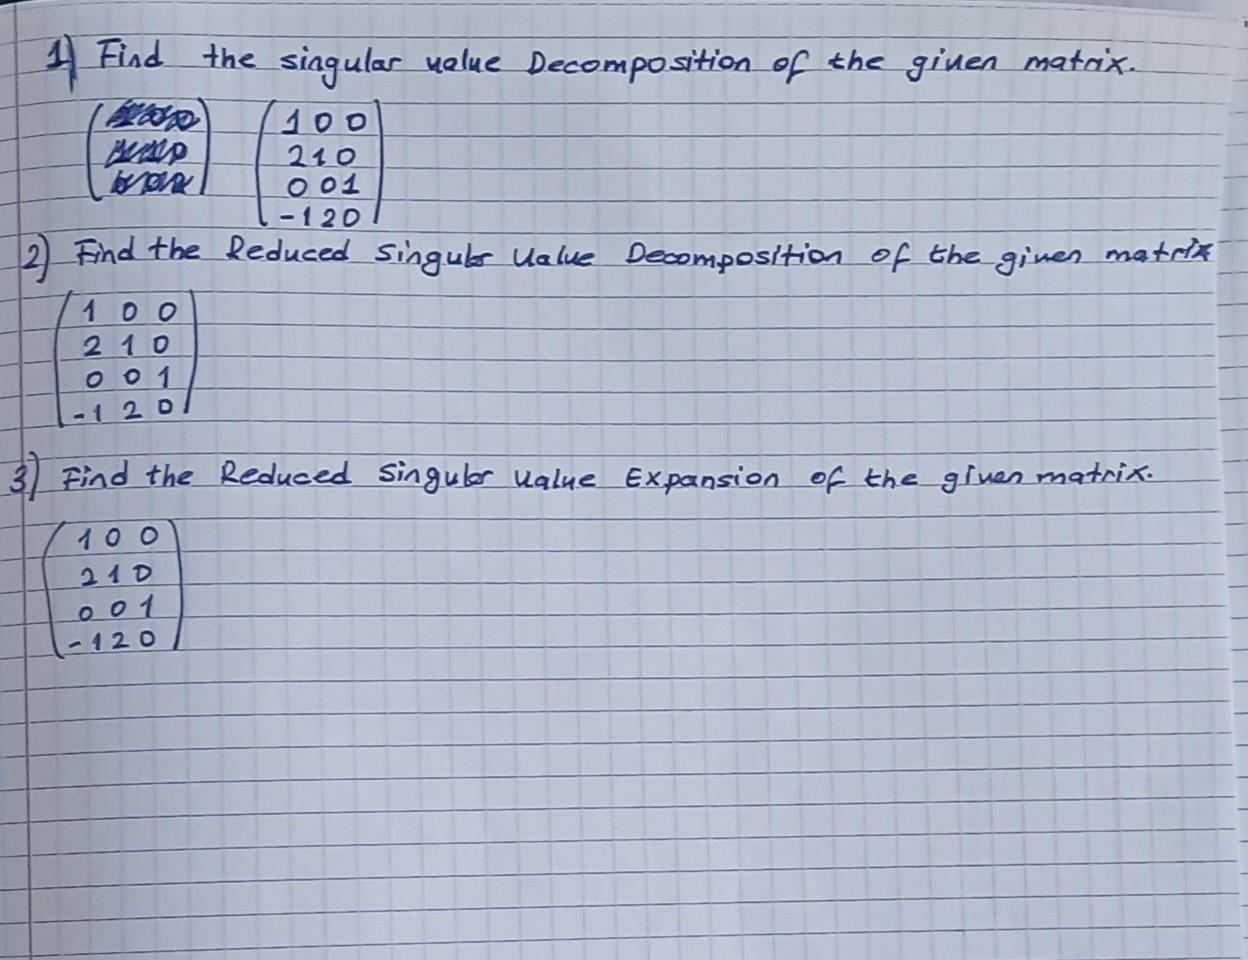 1) Find the singular value Decomposition of the given matrix.
1 0 0
2 1 0
0 0 1
-1 2 0
2) Find the Reduced Singular Value Decomposition of the given matrix
1 0 0
2 1 0
0 0 1
-1 2 0
3) Find the Reduced Singular Value Expansion of the given matrix.
1 0 0
2 1 0
0 0 1
-1 2 0